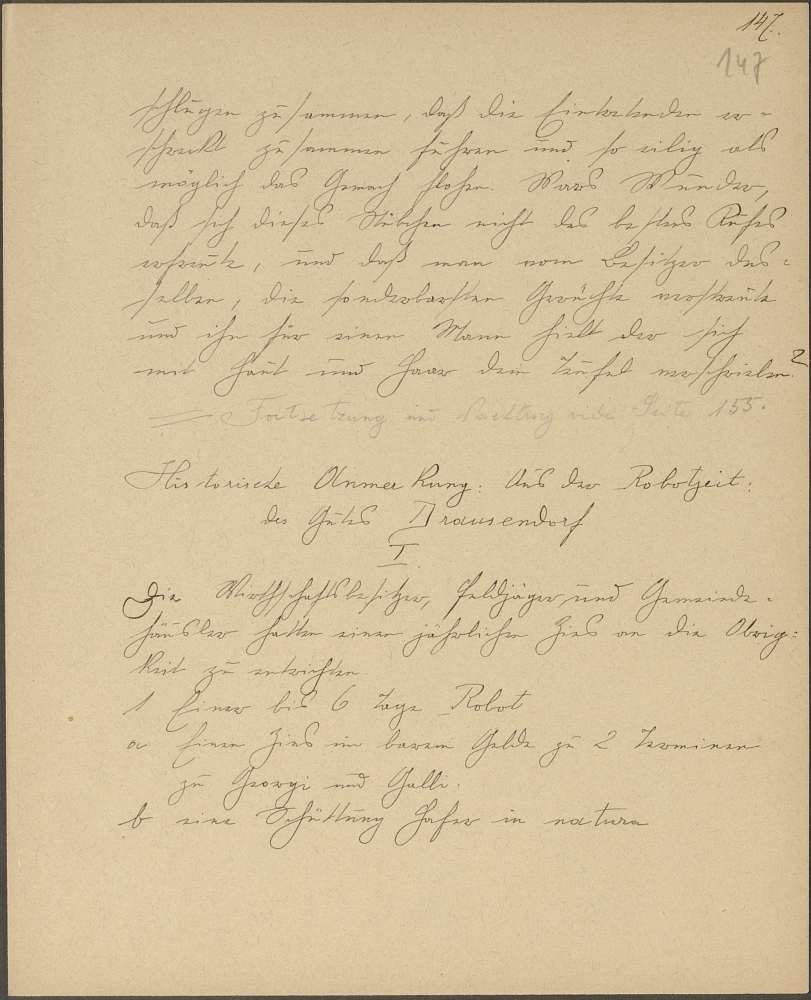 147.
147
schlugen zusammen, daß die Eintretenden er-
schreckt zusammen fuhren und so eilig als
möglich das Gemach flohen. Wars Wunder,
daß sich dieses Stübchen nicht des bestens Rufes
erfreute, und daß man vom Besitzer des-
selben, die sonderbarsten Gerüchte verstreute
und ihn für einen Mann hielt der sich
mit Haut und Haar dem Teufel verschrieben?
Fortsetzung und Nachtrag vide Seite 155.
Historische Anmerkung: Aus der Robotzeit:
des Gutes Brausendorf
I.
Die Wirthschaftsbesitzer, Feldjäger und Gemeinde-
häusler hatten einen jährlichen Zins an die Obrig-
keit zu entrichten
1 Einer bis 6 Tage Robot
a Einen Zins im barem Gelde zu 2 Terminen
zu Georgi und Galli.
b eine Schüttung Hafer in natura